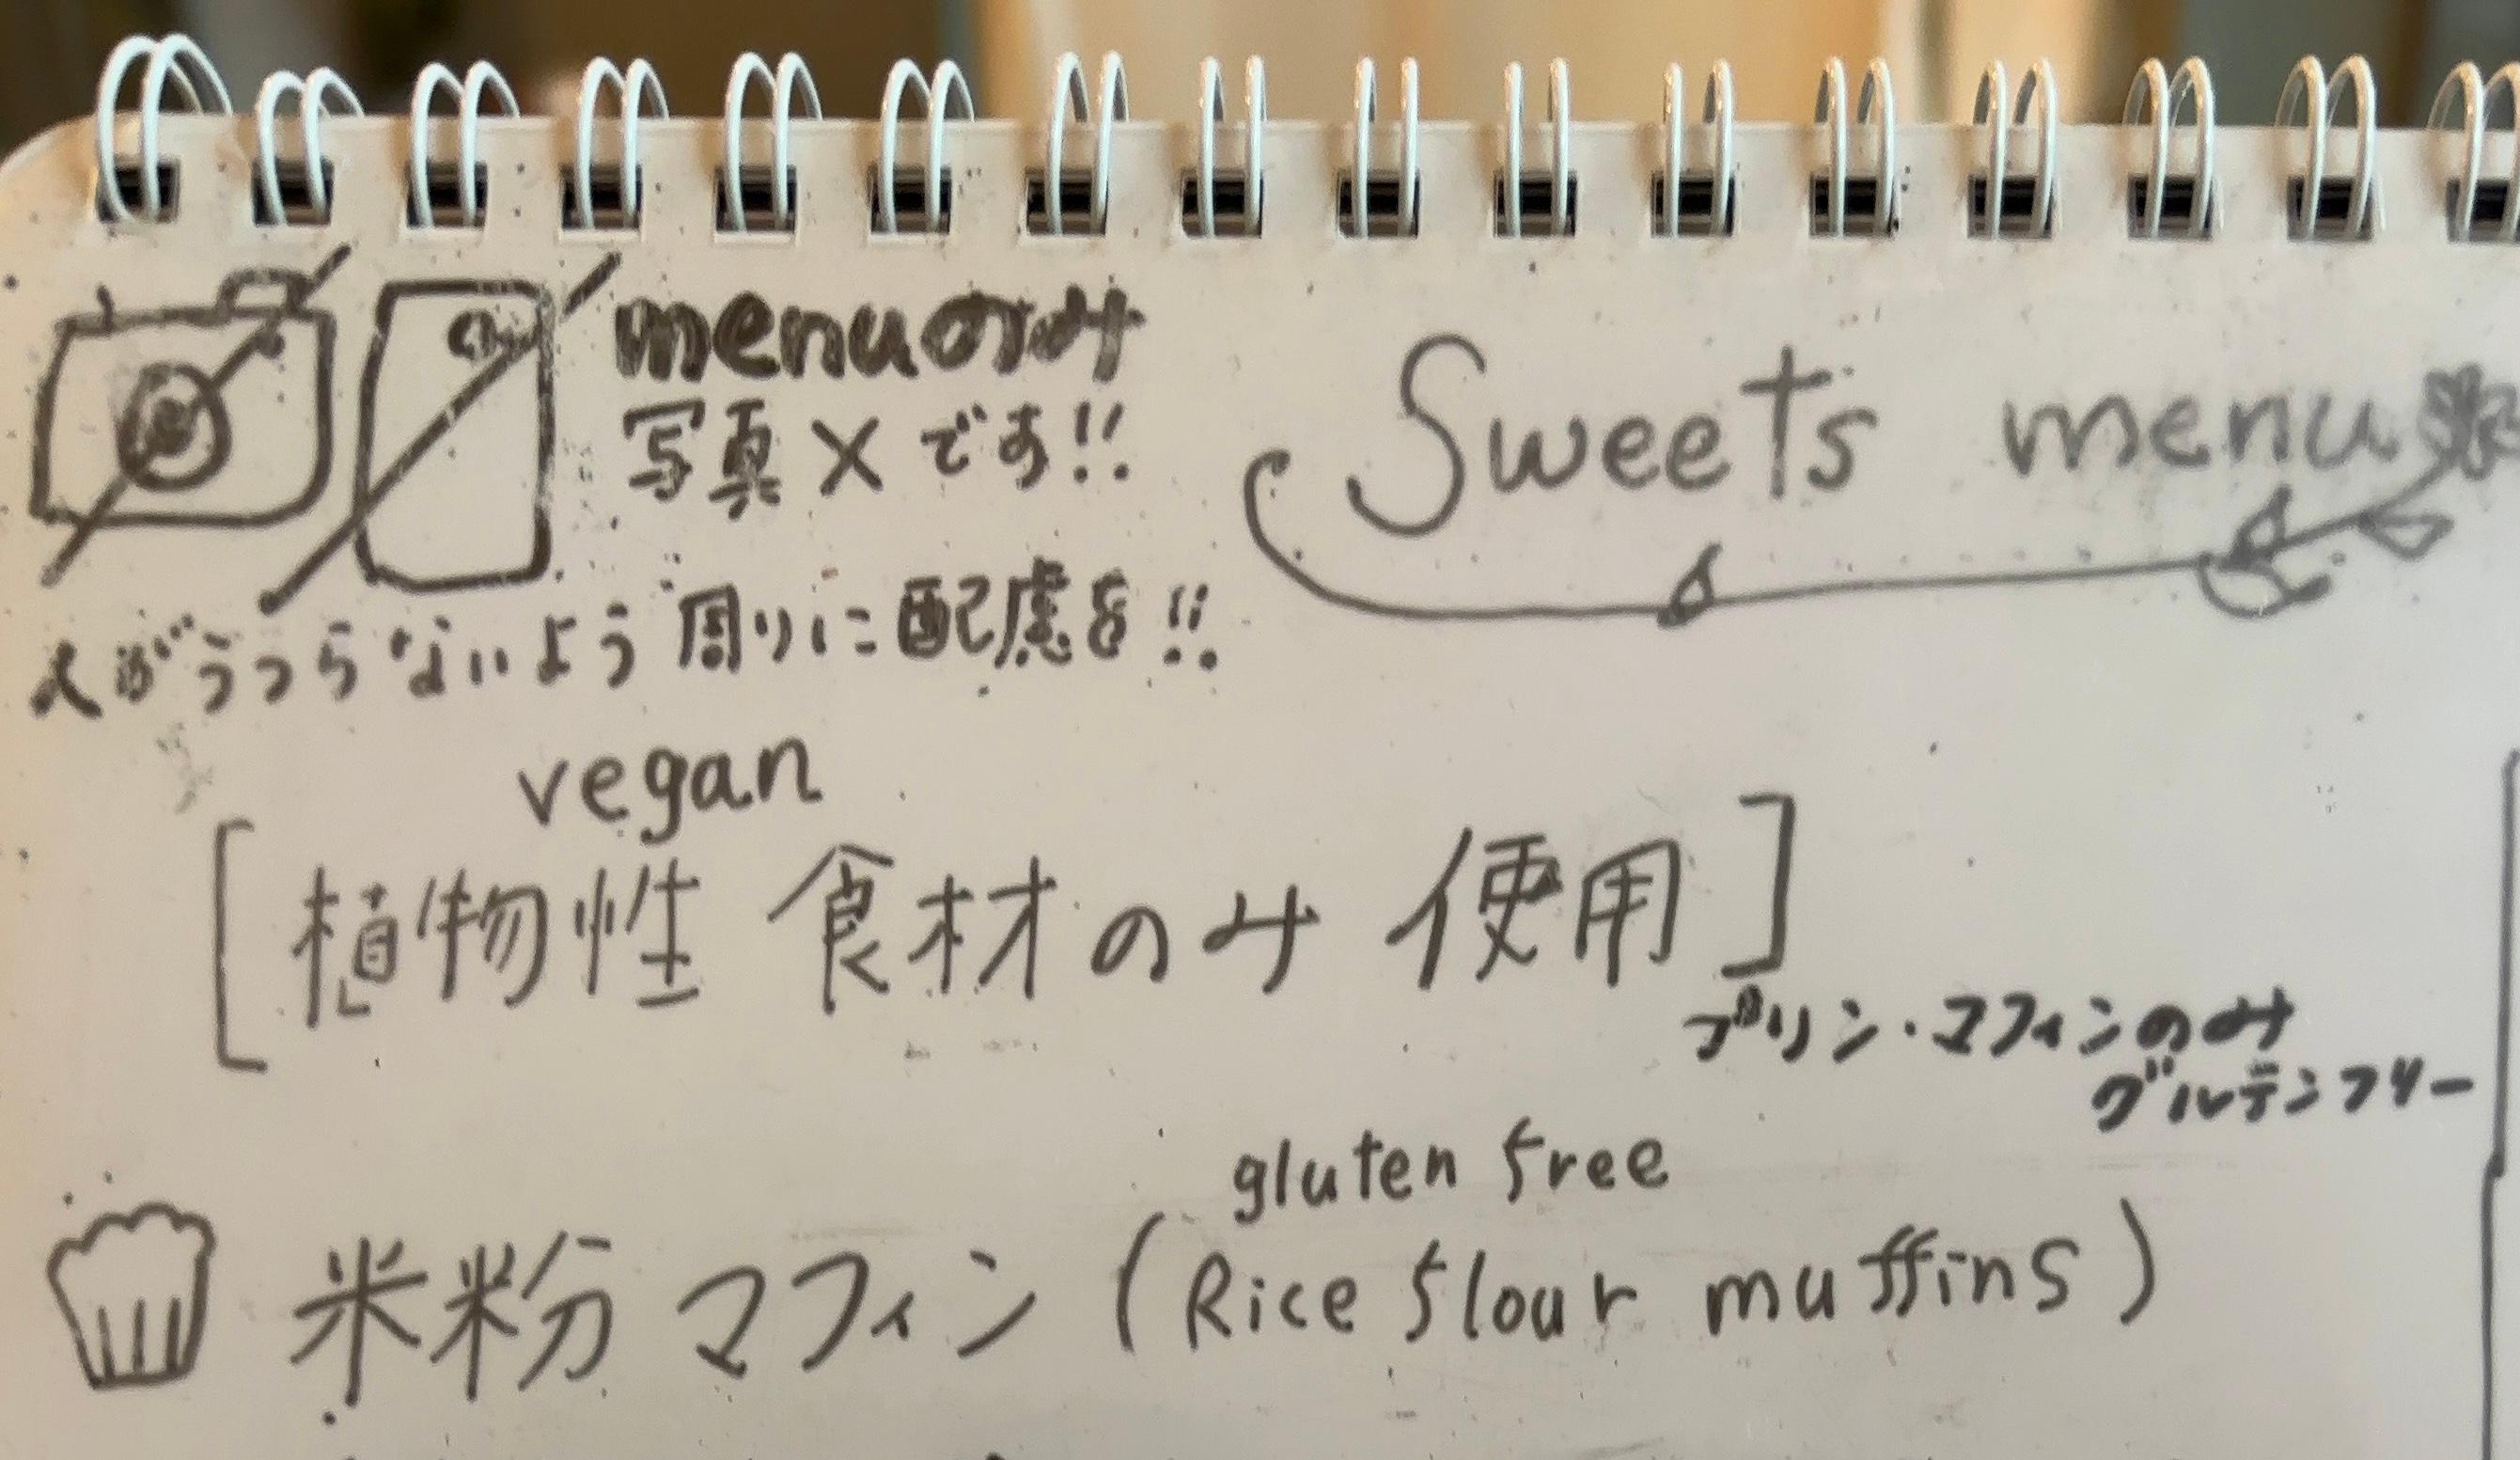 menuのみ
写真×です!!
人がうつらないよう周りに配慮を!!
Sweets menu
vegan
[植物性 食材のみ 使用]
プリン・マフィンのみ
グルテンフリー
gluten free
米粉 マフィン (Rice flour muffins)